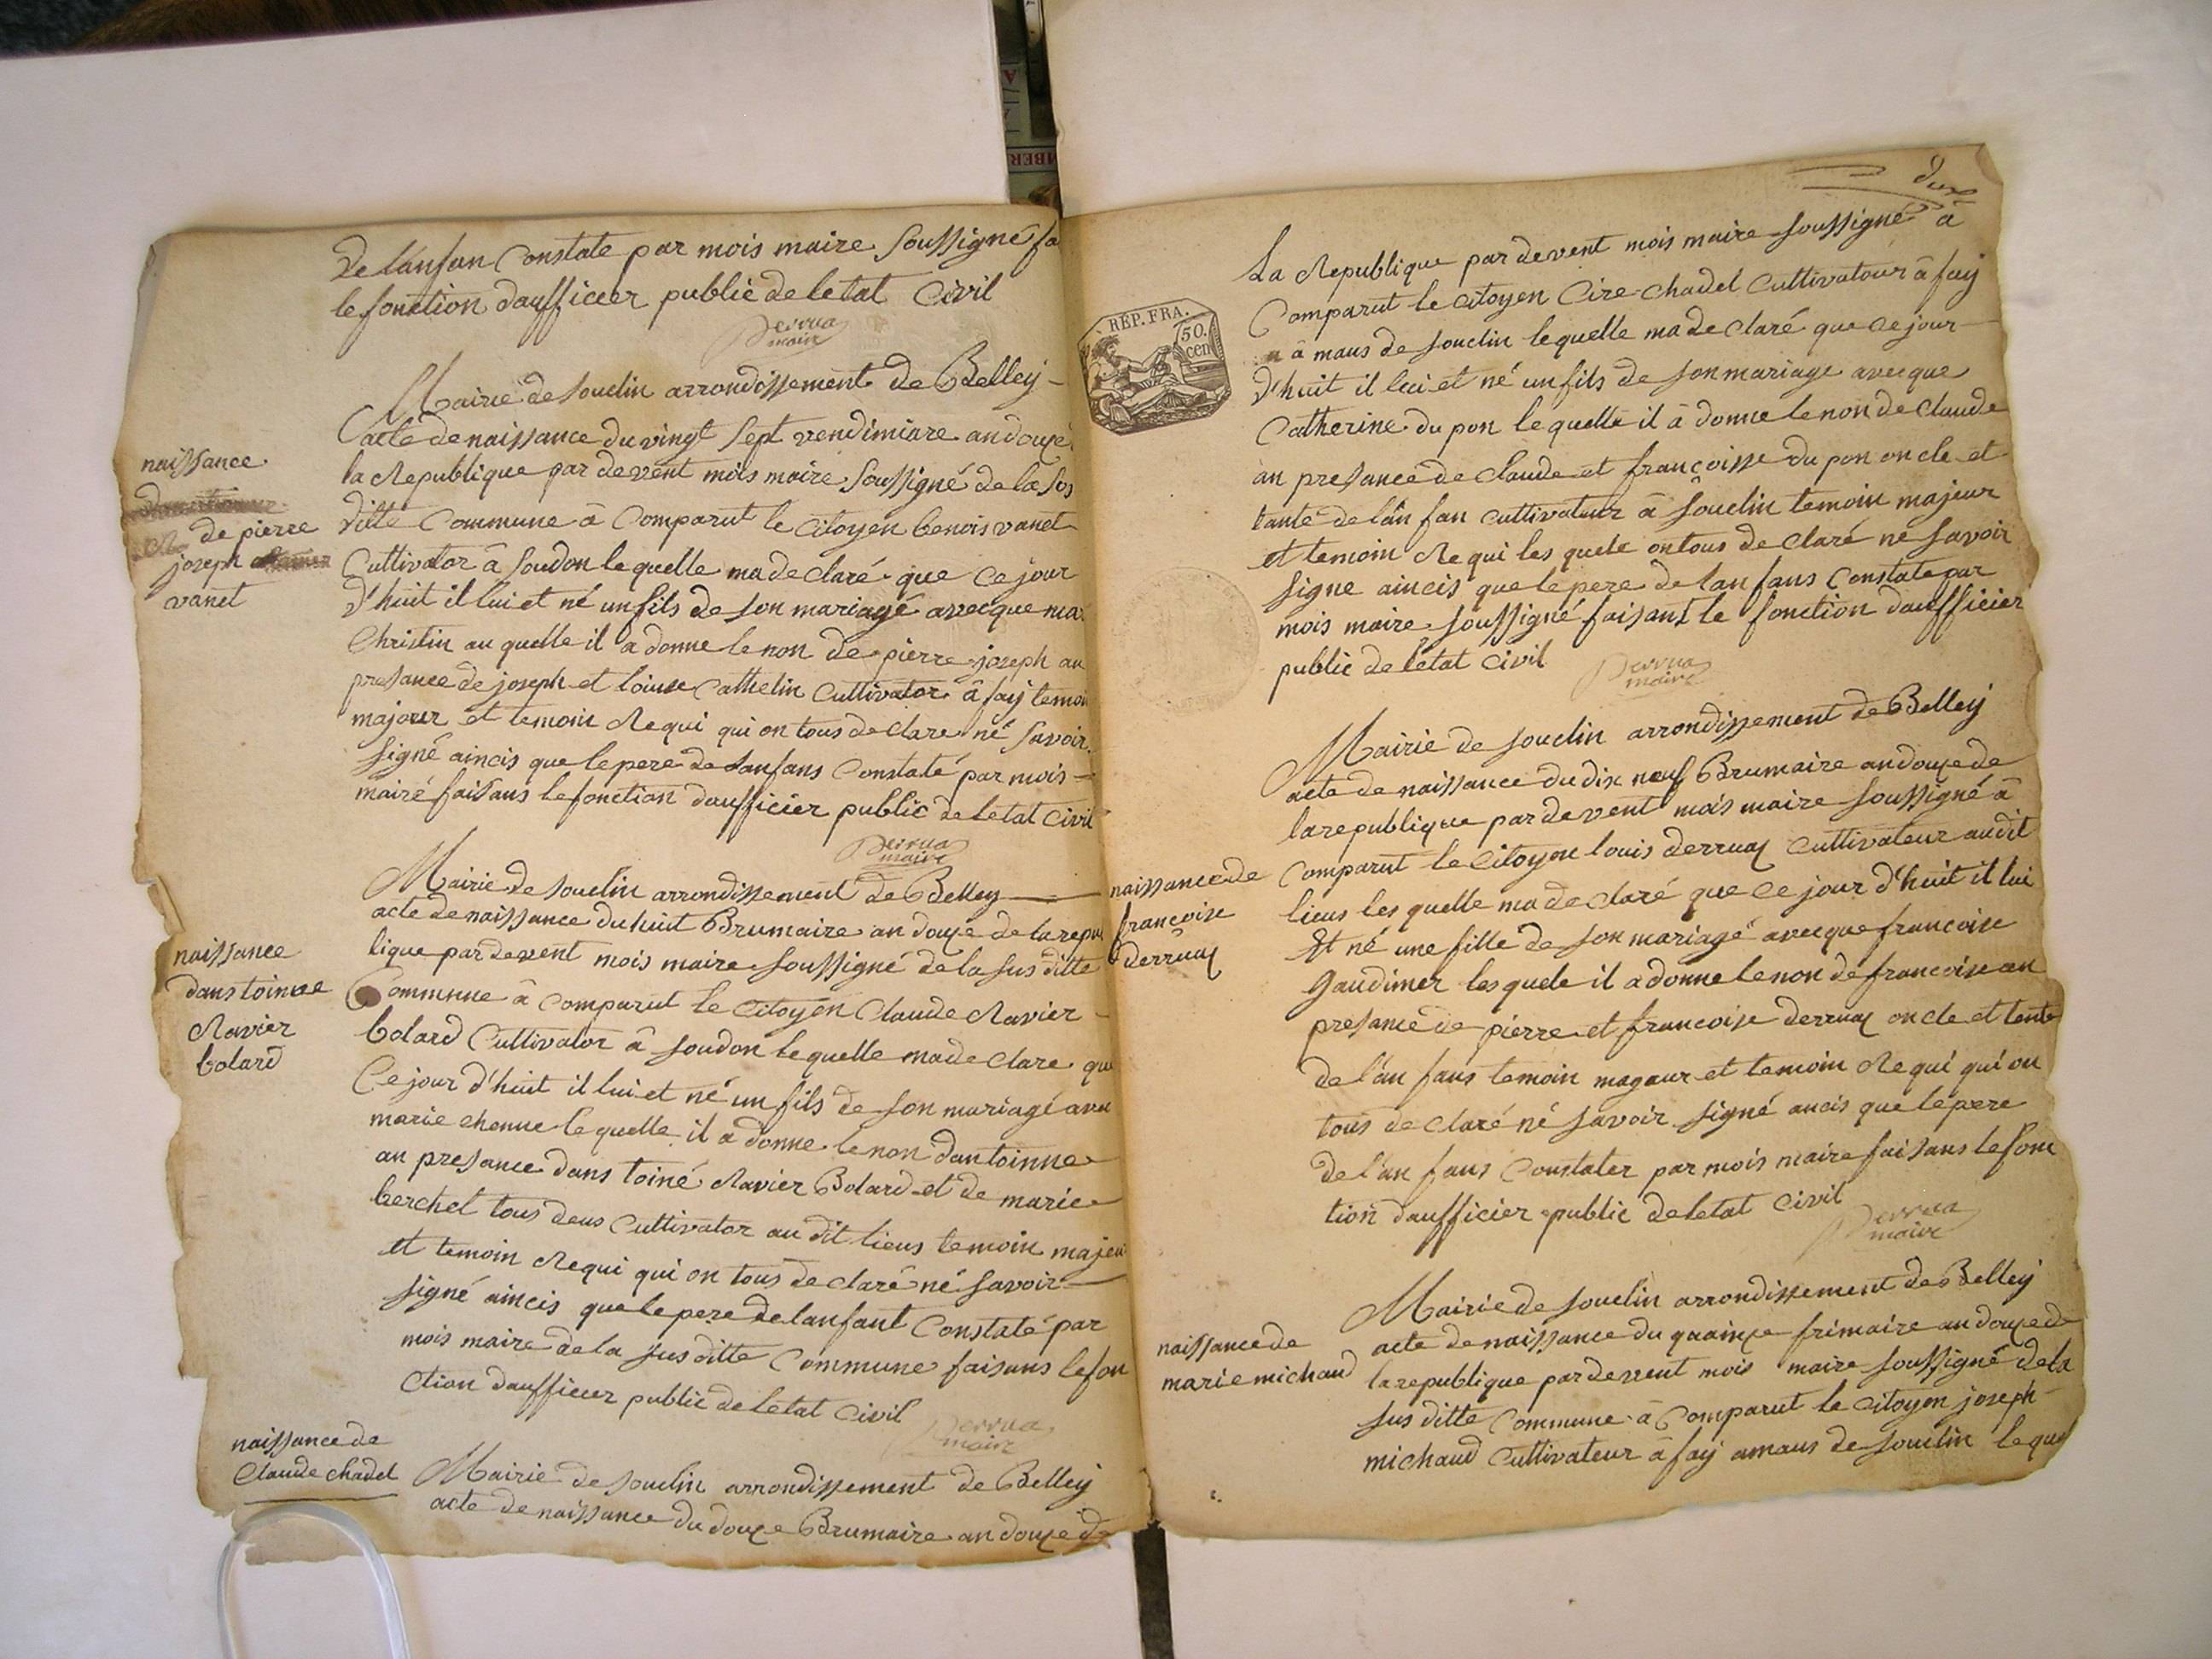 de lanfan Constate par mois maire soussigné fa
le fonction daufficier public de letat Civil
Derrua
maire
Mairie de souclin arrondissement de Belley
acte de naissance du vingt sept vendimiare an douze
la Republique par devent mois maire soussigné de la sus
ditte Commune à Comparut le Citoyen benois vanet
Cultivator à soudon lequelle ma de claré que ce jour
d'huit il lui et né un fils de son mariagé avecque ma
Christin au quelle il a donne le non de pierre joseph an
presance de joseph et louise Cathelin Cultivator à fay temoin
majour et temoin Requi qui on tous de clare né savoir
signé aincis que le pere de lanfans Constaté par mois
mairé faisans le fonction daufficier public de letat Civil
Derrua
maire
naissance
de pierre
joseph
vanet
Mairie de souclin arrondissement de Belley
acte de naissance du huit Brumaire an douze de la repu
lique par devent mois maire soussigné de la sus ditte
Commune à Comparut le Citoyen Claude Ravier
bolard Cultivator à soudon lequelle ma de clare que
Ce jour d'huit il lui et né un fils de son mariagé avec
marie chenne lequelle il a donne le non dantoinne
an presance dans toiné Ravier Bolard et de marie
berchet tous deus Cultivator au dit lieus temoin majeu
et temoin Requi qui on tous de claré né savoir
signé aincis que le pere de lanfant Constaté par
mois maire de la sus ditte Commune faisans le fon
ction daufficier public de letat Civil
Derrua
maire
naissance
dans toinne
Ravier
bolard
naissance de
Claude chadel
Mairie de souclin arrondissement de Belley
acte de naissance du douze Brumaire an douze de
dux
RÉP. FRA.
50.
cen
La Republique par devent mois maire soussigné à
Comparut le Citoyen Cire chadel Cultivatour à fay
à maus de souclin lequelle ma de claré que ce jour
d'huit il lui et né un fils de son mariage avecque
Catherine du pon lequelle il à donne le non de Claude
an presance de Claude et françoisse du pon oncle et
tante de lan fan Cultivatur à souclin temoin majeur
et temoin Requi les quele on tous de claré né savoir
signe aincis que le pere de lan fans Constate par
mois maire soussigné faisant le fonction daufficier
public de letat Civil
Derrua
maire
Mairie de souclin arrondissement de Belley
acte de naissance du dix neuf Brumaire an douze de
la republique par devent mois maire soussigné à
Comparut le Citoyen louis derruaz Cultivateur audit
lieus les quelle ma de claré que ce jour d'huit il lui
Et né une fille de son mariagé avecque francoise
gaudimer les quele il a donne le non de francoise an
presance de pierre et francoise derruaz oncle et tente
de l'an fans temoin magaur et temoin Requi qui on
tous de claré né savoir signé ancis que le pere
de l'an fans Constater par mois maire faisans le fonc
tion daufficier public de letat Civil
Derrua
maire
naissance de
francoise
derruaz
Mairie de souclin arrondissement de Belley
acte de naissance du quainze frimaire an douze de
la republique par devent mois maire soussigné de la
sus ditte Commune à Comparut le Citoyen joseph
michaud Cultivateur à fay amaus de souclin leque
naissance de
marie michaud